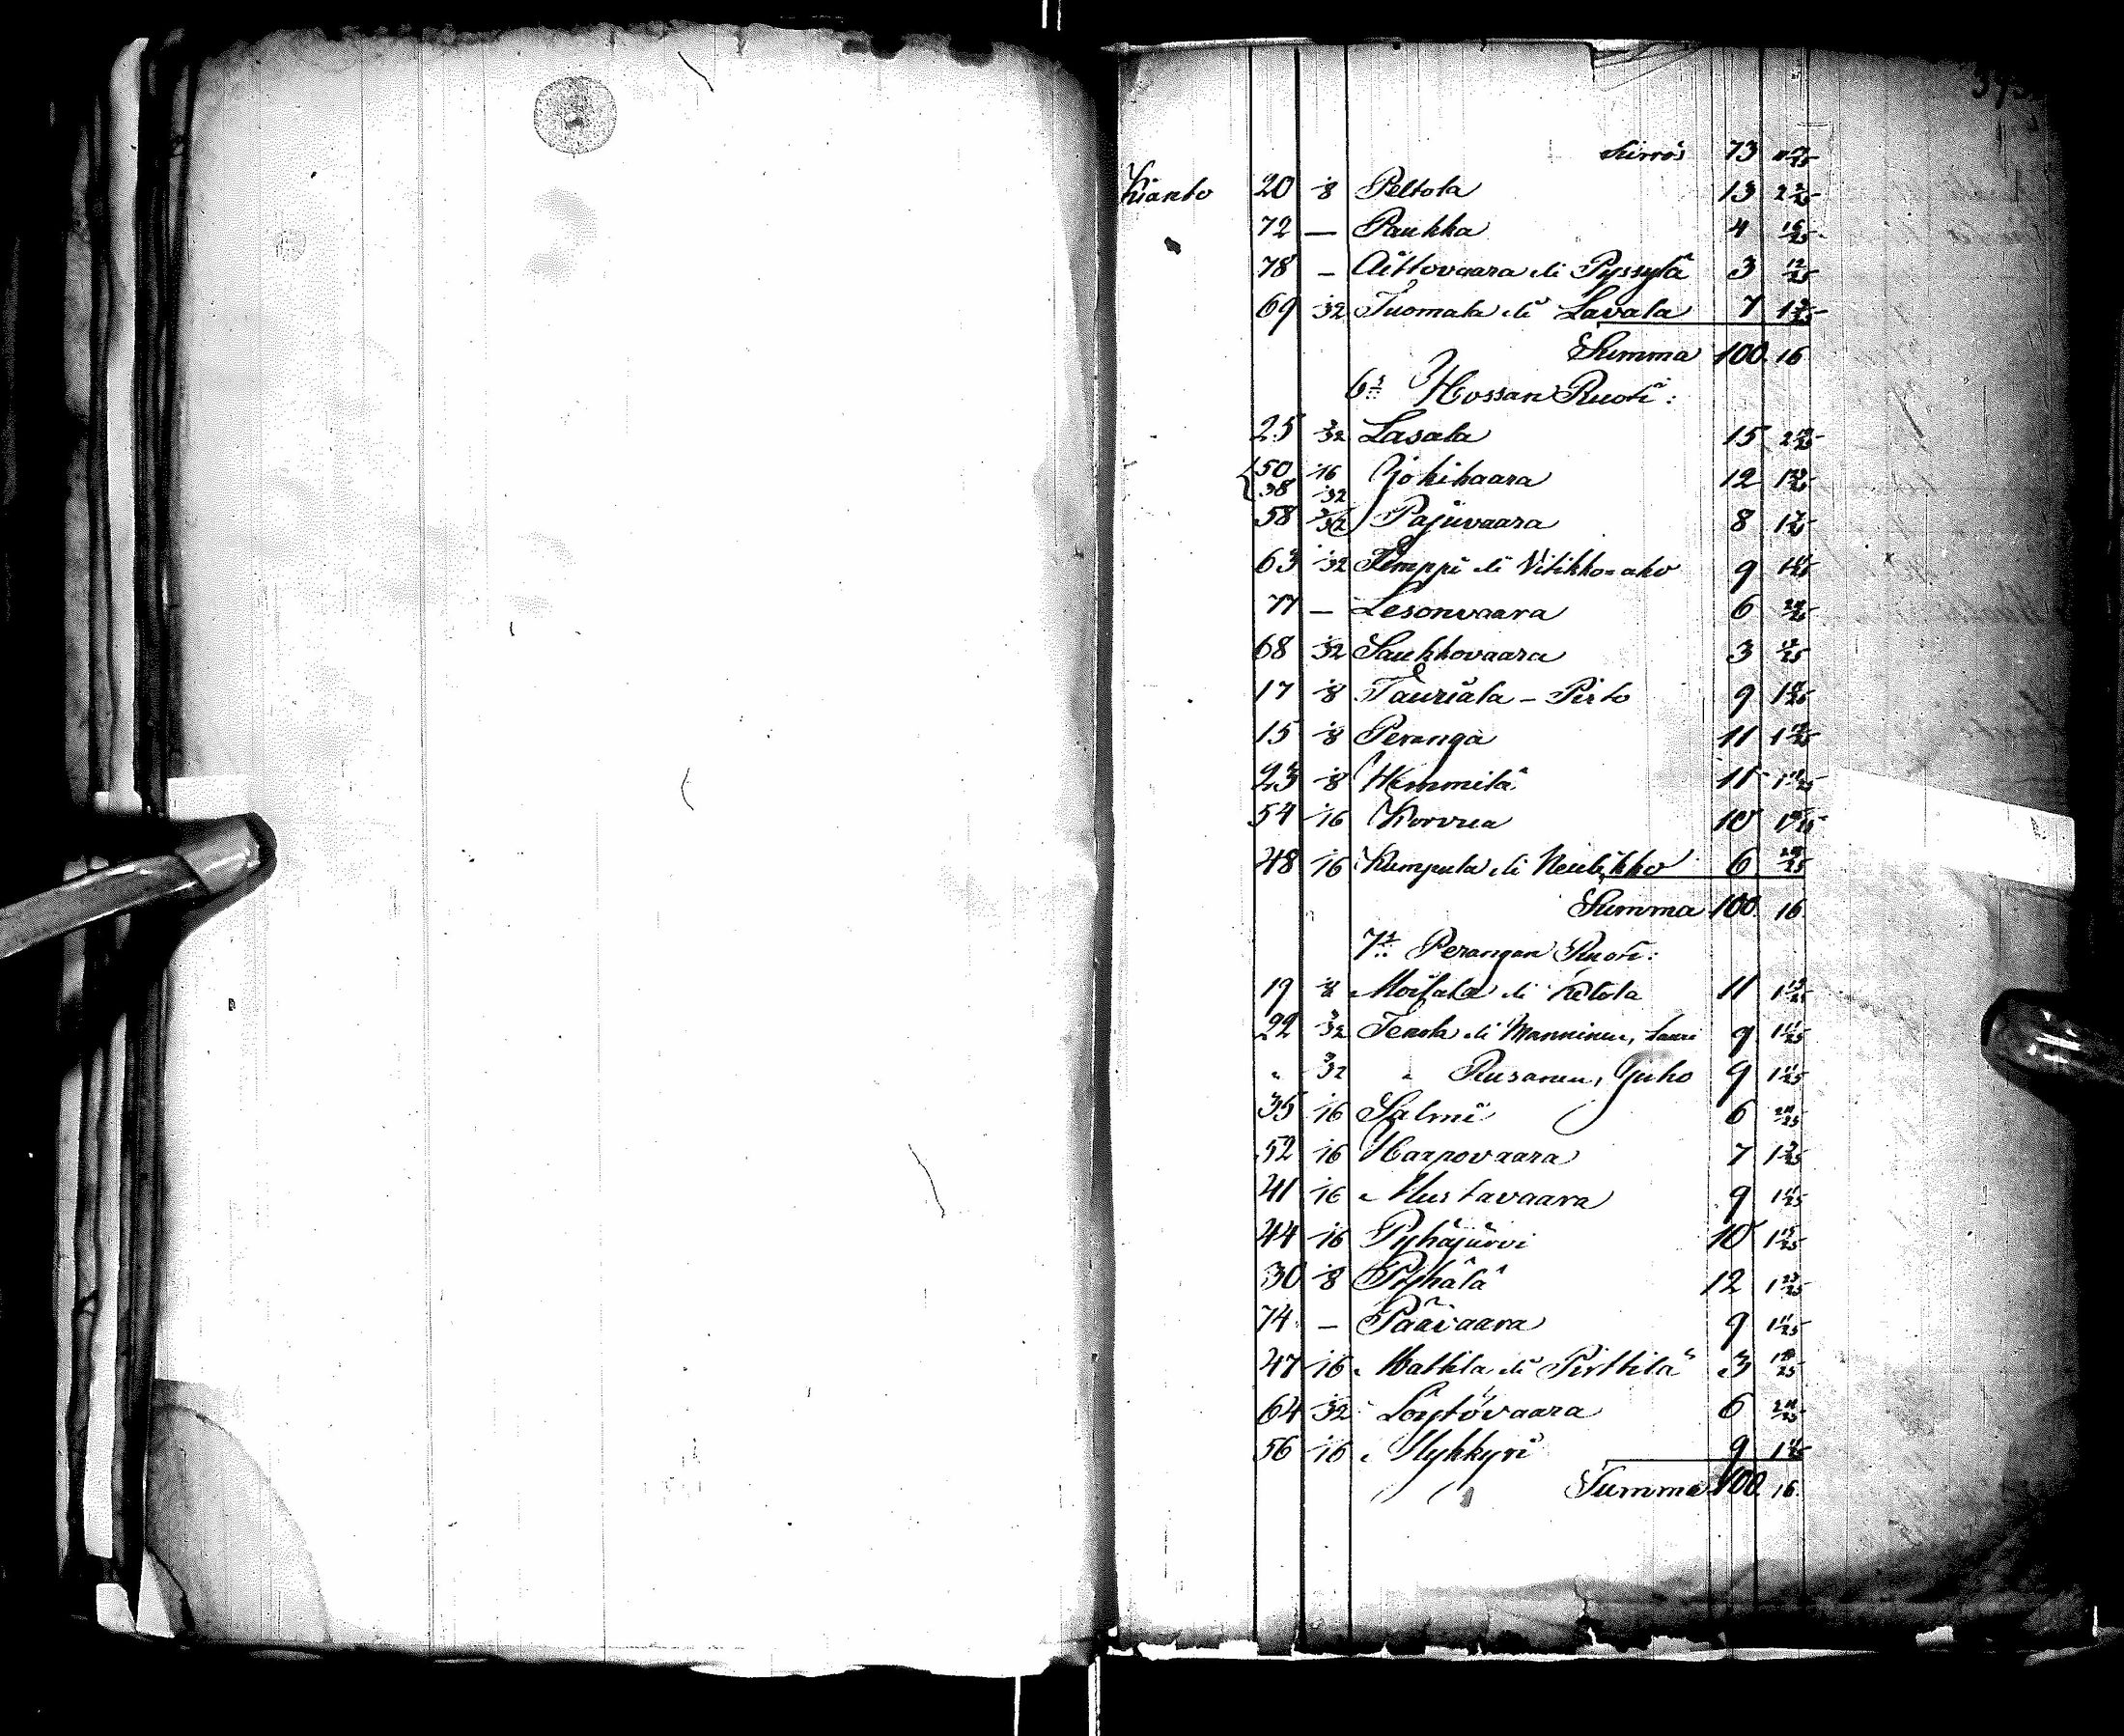 Siirros 73
Kianto 20 1/8 Peltola 13 2 2/25
72 — Paukka 4 16/25
78 — Aittovaara eli Pyssylä 3 12/25
69 1/32 Tuomala eli Lavala 7 1 3/25
Summa 100 16
6:s Hossan Ruoti:
25 3/32 Lasala 15 2 10/25
50 1/16 Jokikaara 12 1 23/25
38 1/32
58 Pajuvaara 8 1 7/25
63 1/32 Timppi eli Vitikko=aho 9 1 11/25
77 — Lesonvaara 6 24/25
68 1/32 Saukkovaara 3 12/25
17 1/8 Tauriala – Pirto 9 1 11/25
15 1/8 Peranga 11 1 19/25
23 1/8 Hemmilä 11 1 19/25
54 1/16 Korvua 10 1 15/25
48 1/16 Kumpula eli Neulikko 6 24/25
Summa 100 16
7:s Perangan Ruoti:
19 1/8 Moilala eli Ketola 11 1 19/25
22 3/32 Tenola eli Manninen, Lauri 9 1 11/25
" 3/32 " Rusanen, Juho 9 1 11/25
35 1/16 Salmi 6 24/25
52 1/16 Haapovaara 7 1 3/25
41 1/16 Mustavaara 9 1 11/25
44 1/16 Pyhäjärvi 10 1 15/25
30 1/8 Pyhälä 12 1 23/25
74 — Päävaara 9 1 11/25
47 1/16 Mattila eli Pirttilä 3 12/25
64 1/32 Löytövaara 6 24/25
56 1/16 Mykkyri 9 1 11/25
Summa 100 16